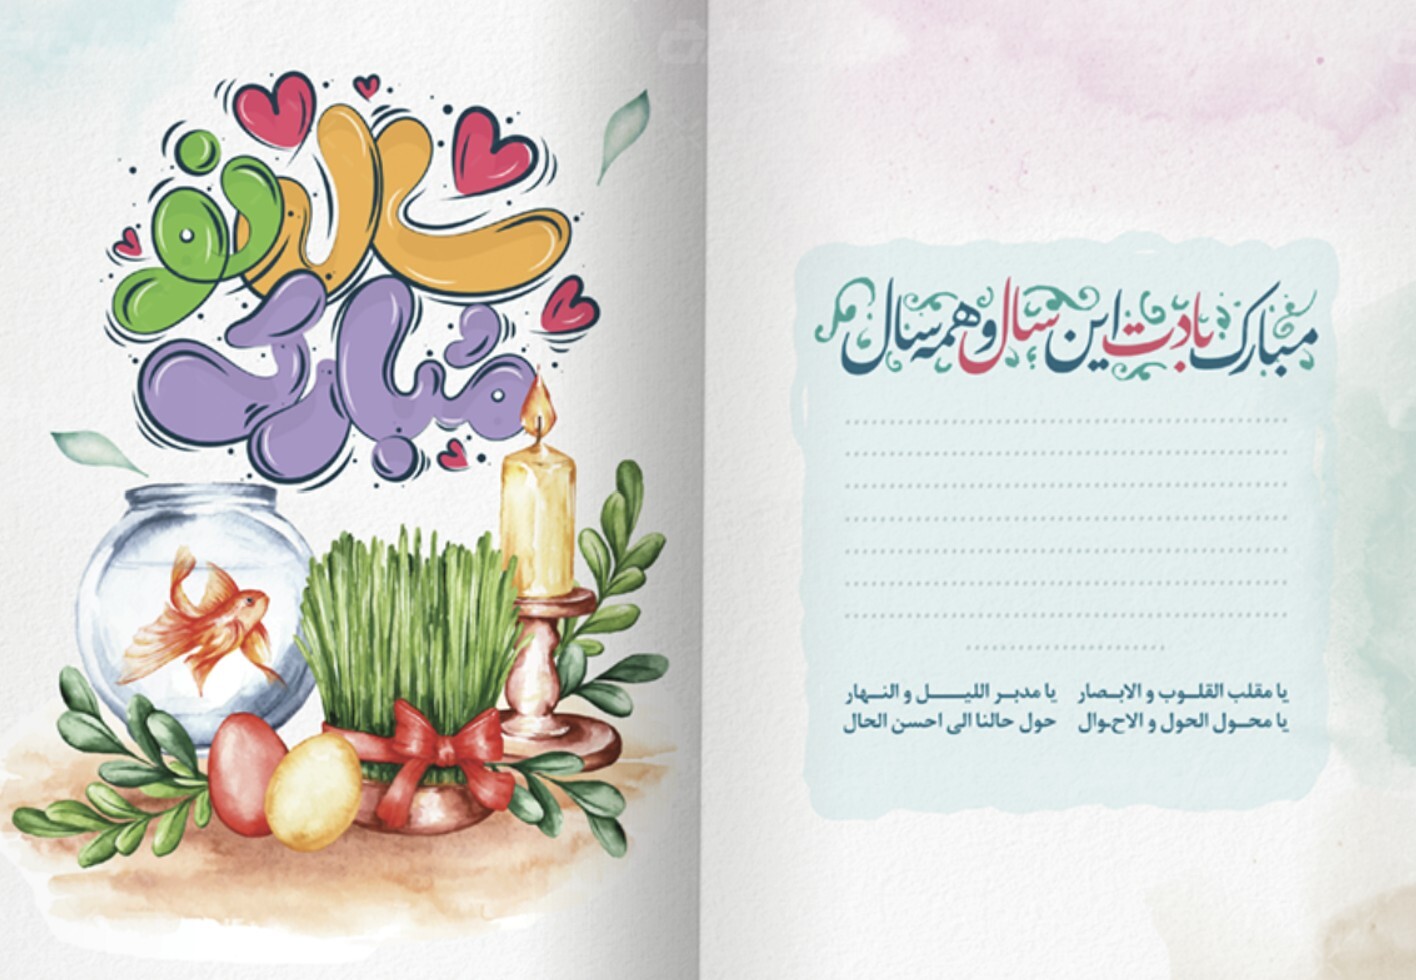 سال نو
مبارک
مبارک بادت این سال و همه سال
یا مقلب القلـوب و الابـصار یا مدبـر اللیـــل و النـهار
یا محـول الحول و الاحوال حول حالنا الی احسن الحال